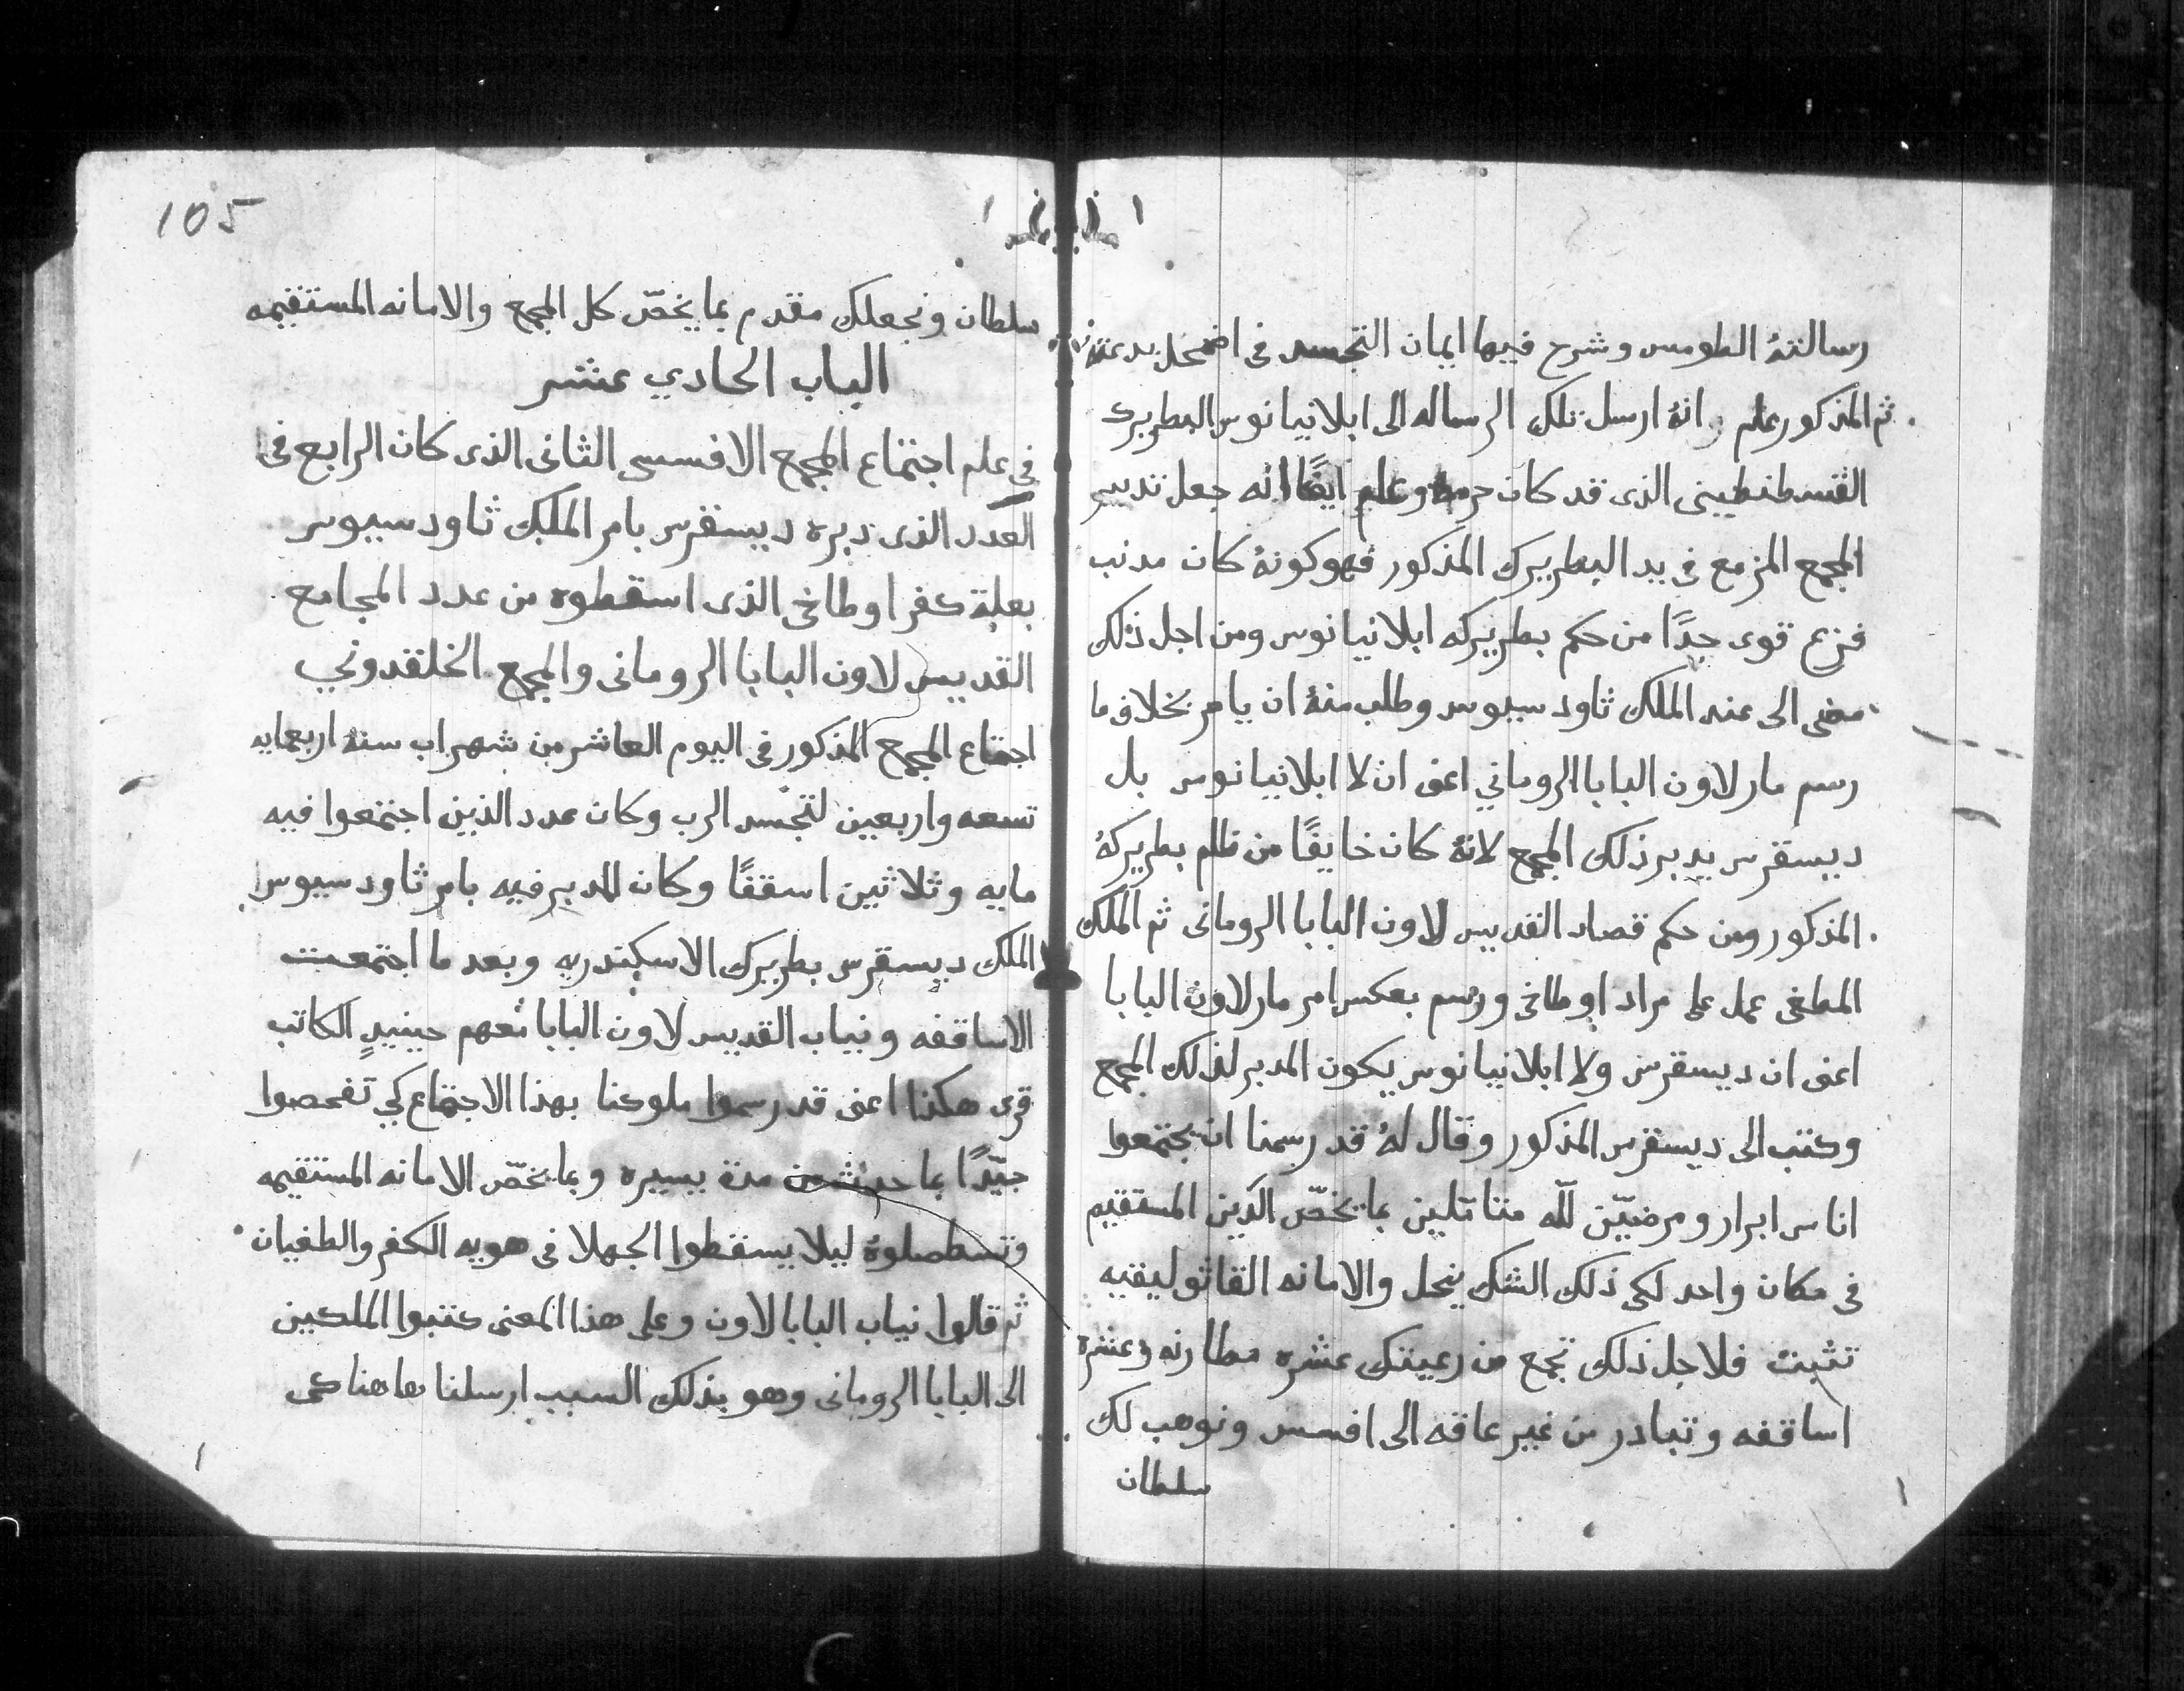 رسالتهُ الطومس وشرح فيها ايمان التجسد في اضمحل بدعتهُ
ثم المذكور علم انهُ ارسل تلك الرساله الى ابلانيانوس البطريرك
القسطنطيني الذى قد كان حرمهُ وعلم ايضًا انه جعل تدبير
المجمع المزمع في يد البطريرك المذكور فهو كونهُ كان مدنب
فزع قوى جدًا من حكم بطريركه ابلانيانوس ومن اجل ذلك
مضى الى عند الملك ثاودسيوس وطلب منهُ ان يامر بخلاف ما
رسم مار لاون البابا الروماني اعنى ان لا ابلانيانوس بل
ديسقرس يدبر ذلك المجمع لانهُ كان خايفًا من ظلم بطريركهُ
المذكور ومن حكم قصاد القديس لاون البابا الرومانى ثم الملك
المطغى عمل على مراد اوطاخى ورسم بعكس امر مار لاون البابا
اعنى ان ديسقرس ولا ابلانيانوس يكون المدبر لذلك المجمع
وكتب الى ديسقرس المذكور وقال لهُ قد رسمنا ان يجتمعوا
اناس ابرار ومرضيّين للّه متناتلين بما يخصّ الدين المستقيم
في مكان واحد لكى ذلك الشك ينحل والامانه القاثوليقيه
تثبت فلاجل ذلك تجمع من رعيتك عشره مطارنه وعشره
اساقفه وتبادر من غير عاقه الى افسس ونوهب لك
سلطان
105
سلطان ونجعلك مقدم بما يخصّ كل المجمع والامانه المستقيمه
الباب الحادي عشر
في علم اجتماع المجمع الافسسى الثانى الذى كان الرابع فى
العدد الذى دبره ديسقرس بامر الملك ثاودسيوس
بعلة كفر اوطاخى الذى اسقطوه من عدد المجامع
القديس لاون البابا الرومانى والمجمع الخلقدوني
اجتماع المجمع المذكور في اليوم العاشر من شهر اب سنة اربعمايه
تسعه واربعين لتجسد الرب وكان عدد الذين اجتمعوا فيه
مايه وثلاثين اسقفًا وكان المدبر فيه بامر ثاودسيوس
الملك ديسقرس بطريرك الاسكندريه وبعد ما اجتمعت
الاساقفه ونياب القديس لاون البابا معهم حينيدٍ الكاتب
قرى هكذا اعنى قد رسموا ملوكنا بهذا الاجتماع كي تفحصوا
جيّدًا بما حدث من مدة يسيره وبما يخصّ الامانه المستقيمه
وتسطصلوهُ ليلا يسقطوا الجهلا في هويه الكفر والطغيان
ثم قالوا نياب البابا لاون وعلى هذا المعنى كتبوا الملكين
الى البابا الرومانى وهو بذلك السبب ارسلنا هاهنا كى